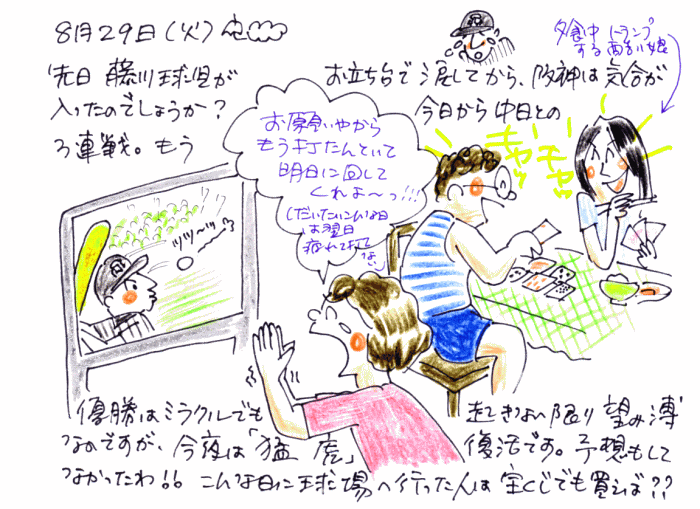 8月29日(火)
夕食中トランプ
する両吉い娘
先日 藤川球児が
お立ち台で涙してから、阪神は気合が
入ったのでしょうか?
今日から中日との
3連戦。もう
お願いやから
もう打たんといて
明日に回して
くれよ〜っ!!!
(だいたいこんな日
は翌日
疲れて打て
ない)
キャッ
キャッ
ツツーッ
優勝はミラクルでも
起きない限り望み薄
なのですが、今夜は「猛虎」
復活です。予想もして
なかったわ!! こんな日に球場へ行った人は宝くじでも買えば??